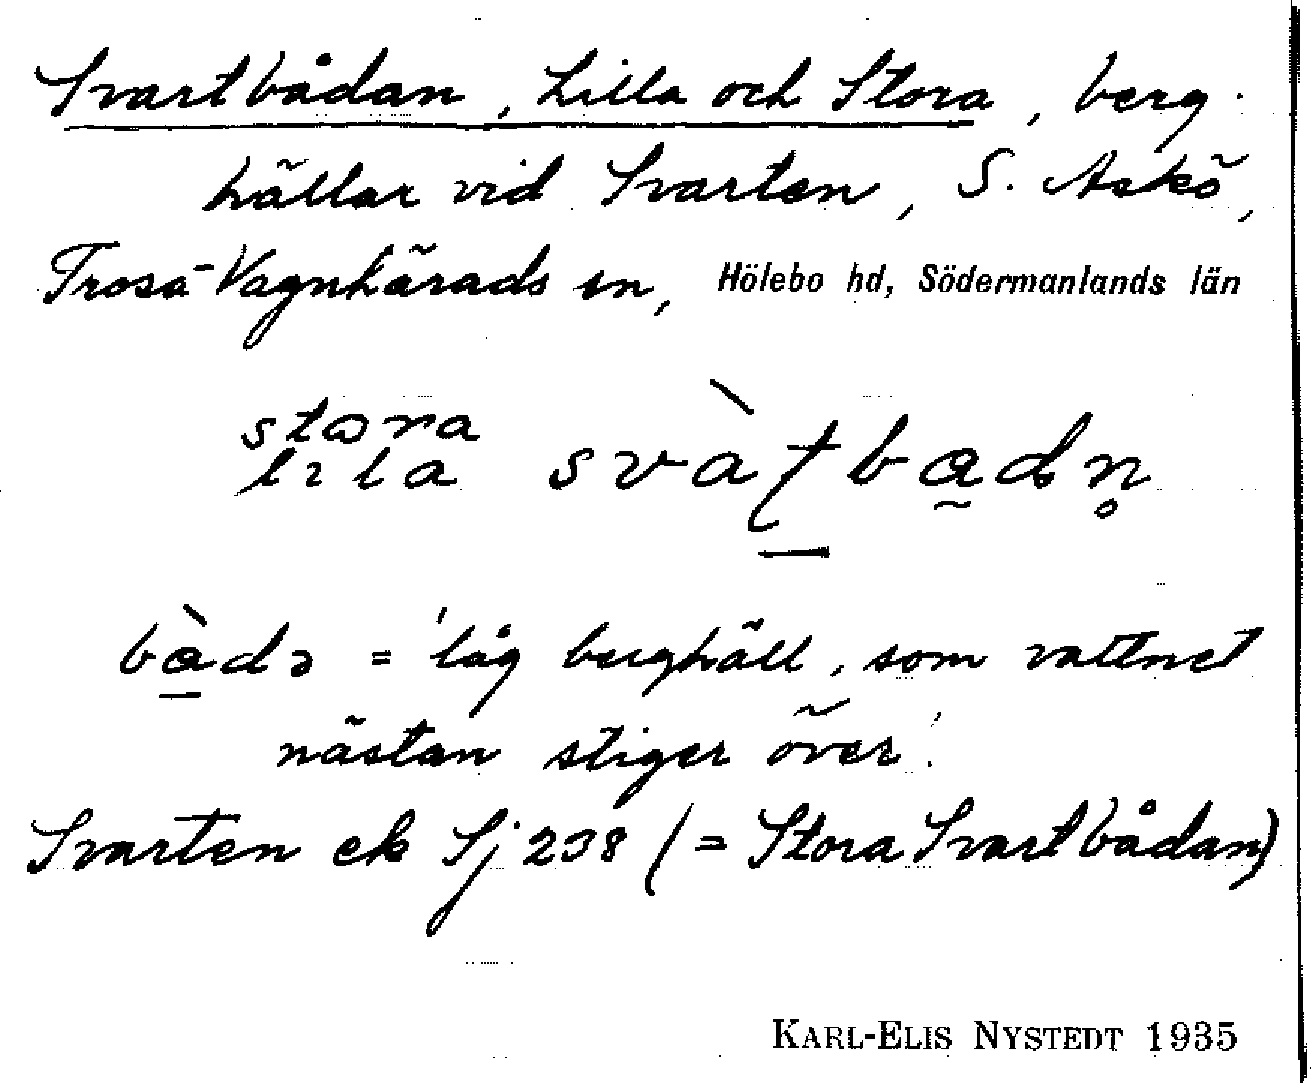 Svartbådan, Lilla och Stora, berg-
hällar vid Svarten, S. Askö,
Trosa-Vagnhärads sn, Hölebo hd, Södermanlands län
stora
lila svàtbadn
bàdə = 'låg berghäll, som vattnet
nästan stiger över'.
Svarten ek Sj 238 (= Stora Svartbådan)
KARL-ELIS NYSTEDT 1935